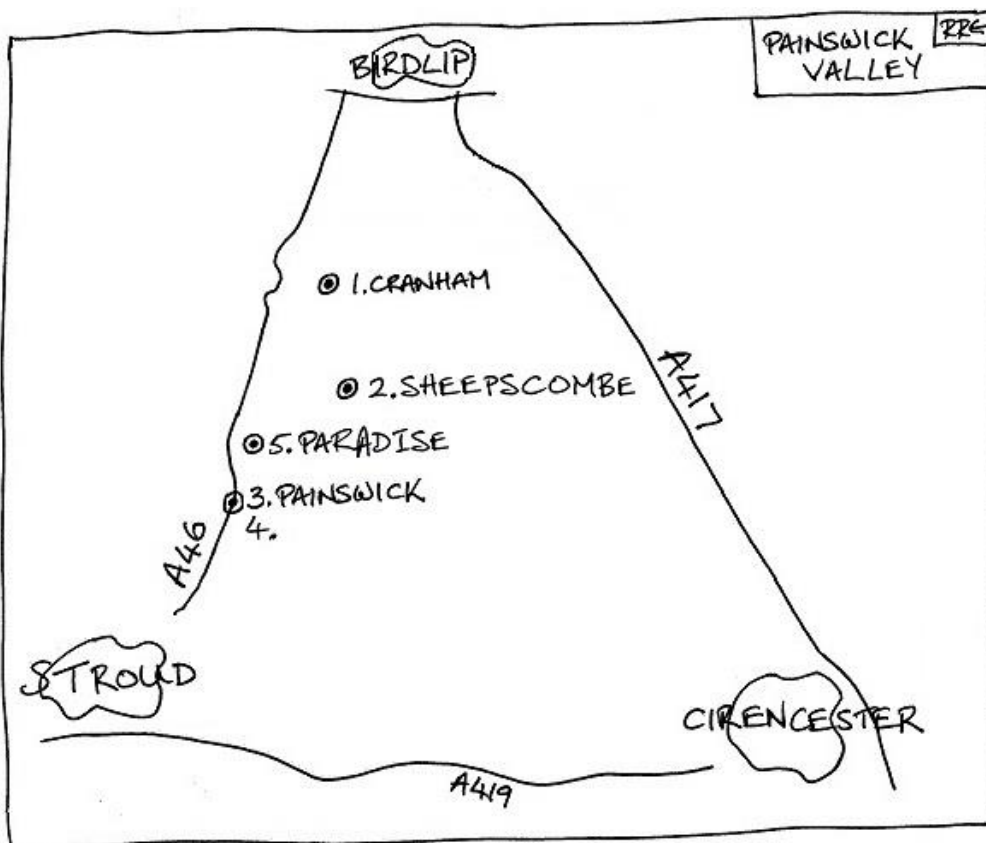 BIRDLIP
PAINSWICK
VALLEY
RRG
1. CRANHAM
2. SHEEPSCOMBE
5. PARADISE
3. PAINSWICK
4.
A46
A417
STROUD
CIRENCESTER
A419